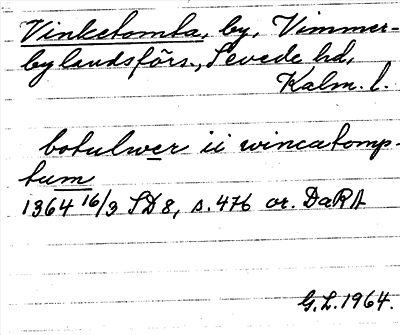 Vinketomta, by, Vimmer-
by landsförs., Sevede hd,
Kalm. l.
botulwer ii wincatomp-
tum
1364 16/3 SD 8, s. 476 or. DaRA
G.L. 1964.